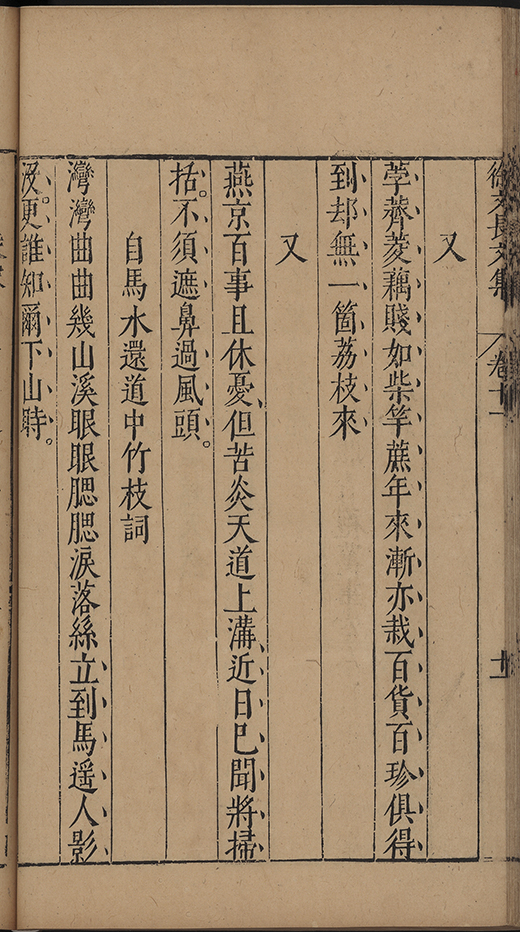 徐文長文集 卷十一 十一
又
荸薺菱藕賤如柴竿蔗年來漸亦栽百貨百珍俱得
到却無一箇荔枝來
又
燕京百事且休憂但苦炎天道上溝近日已聞將掃
括。不須遮鼻過風頭。
自馬水還道中竹枝詞
灣灣曲曲幾山溪眼眼腮腮淚落絲立到馬遥人影
没。更誰知爾下山時。